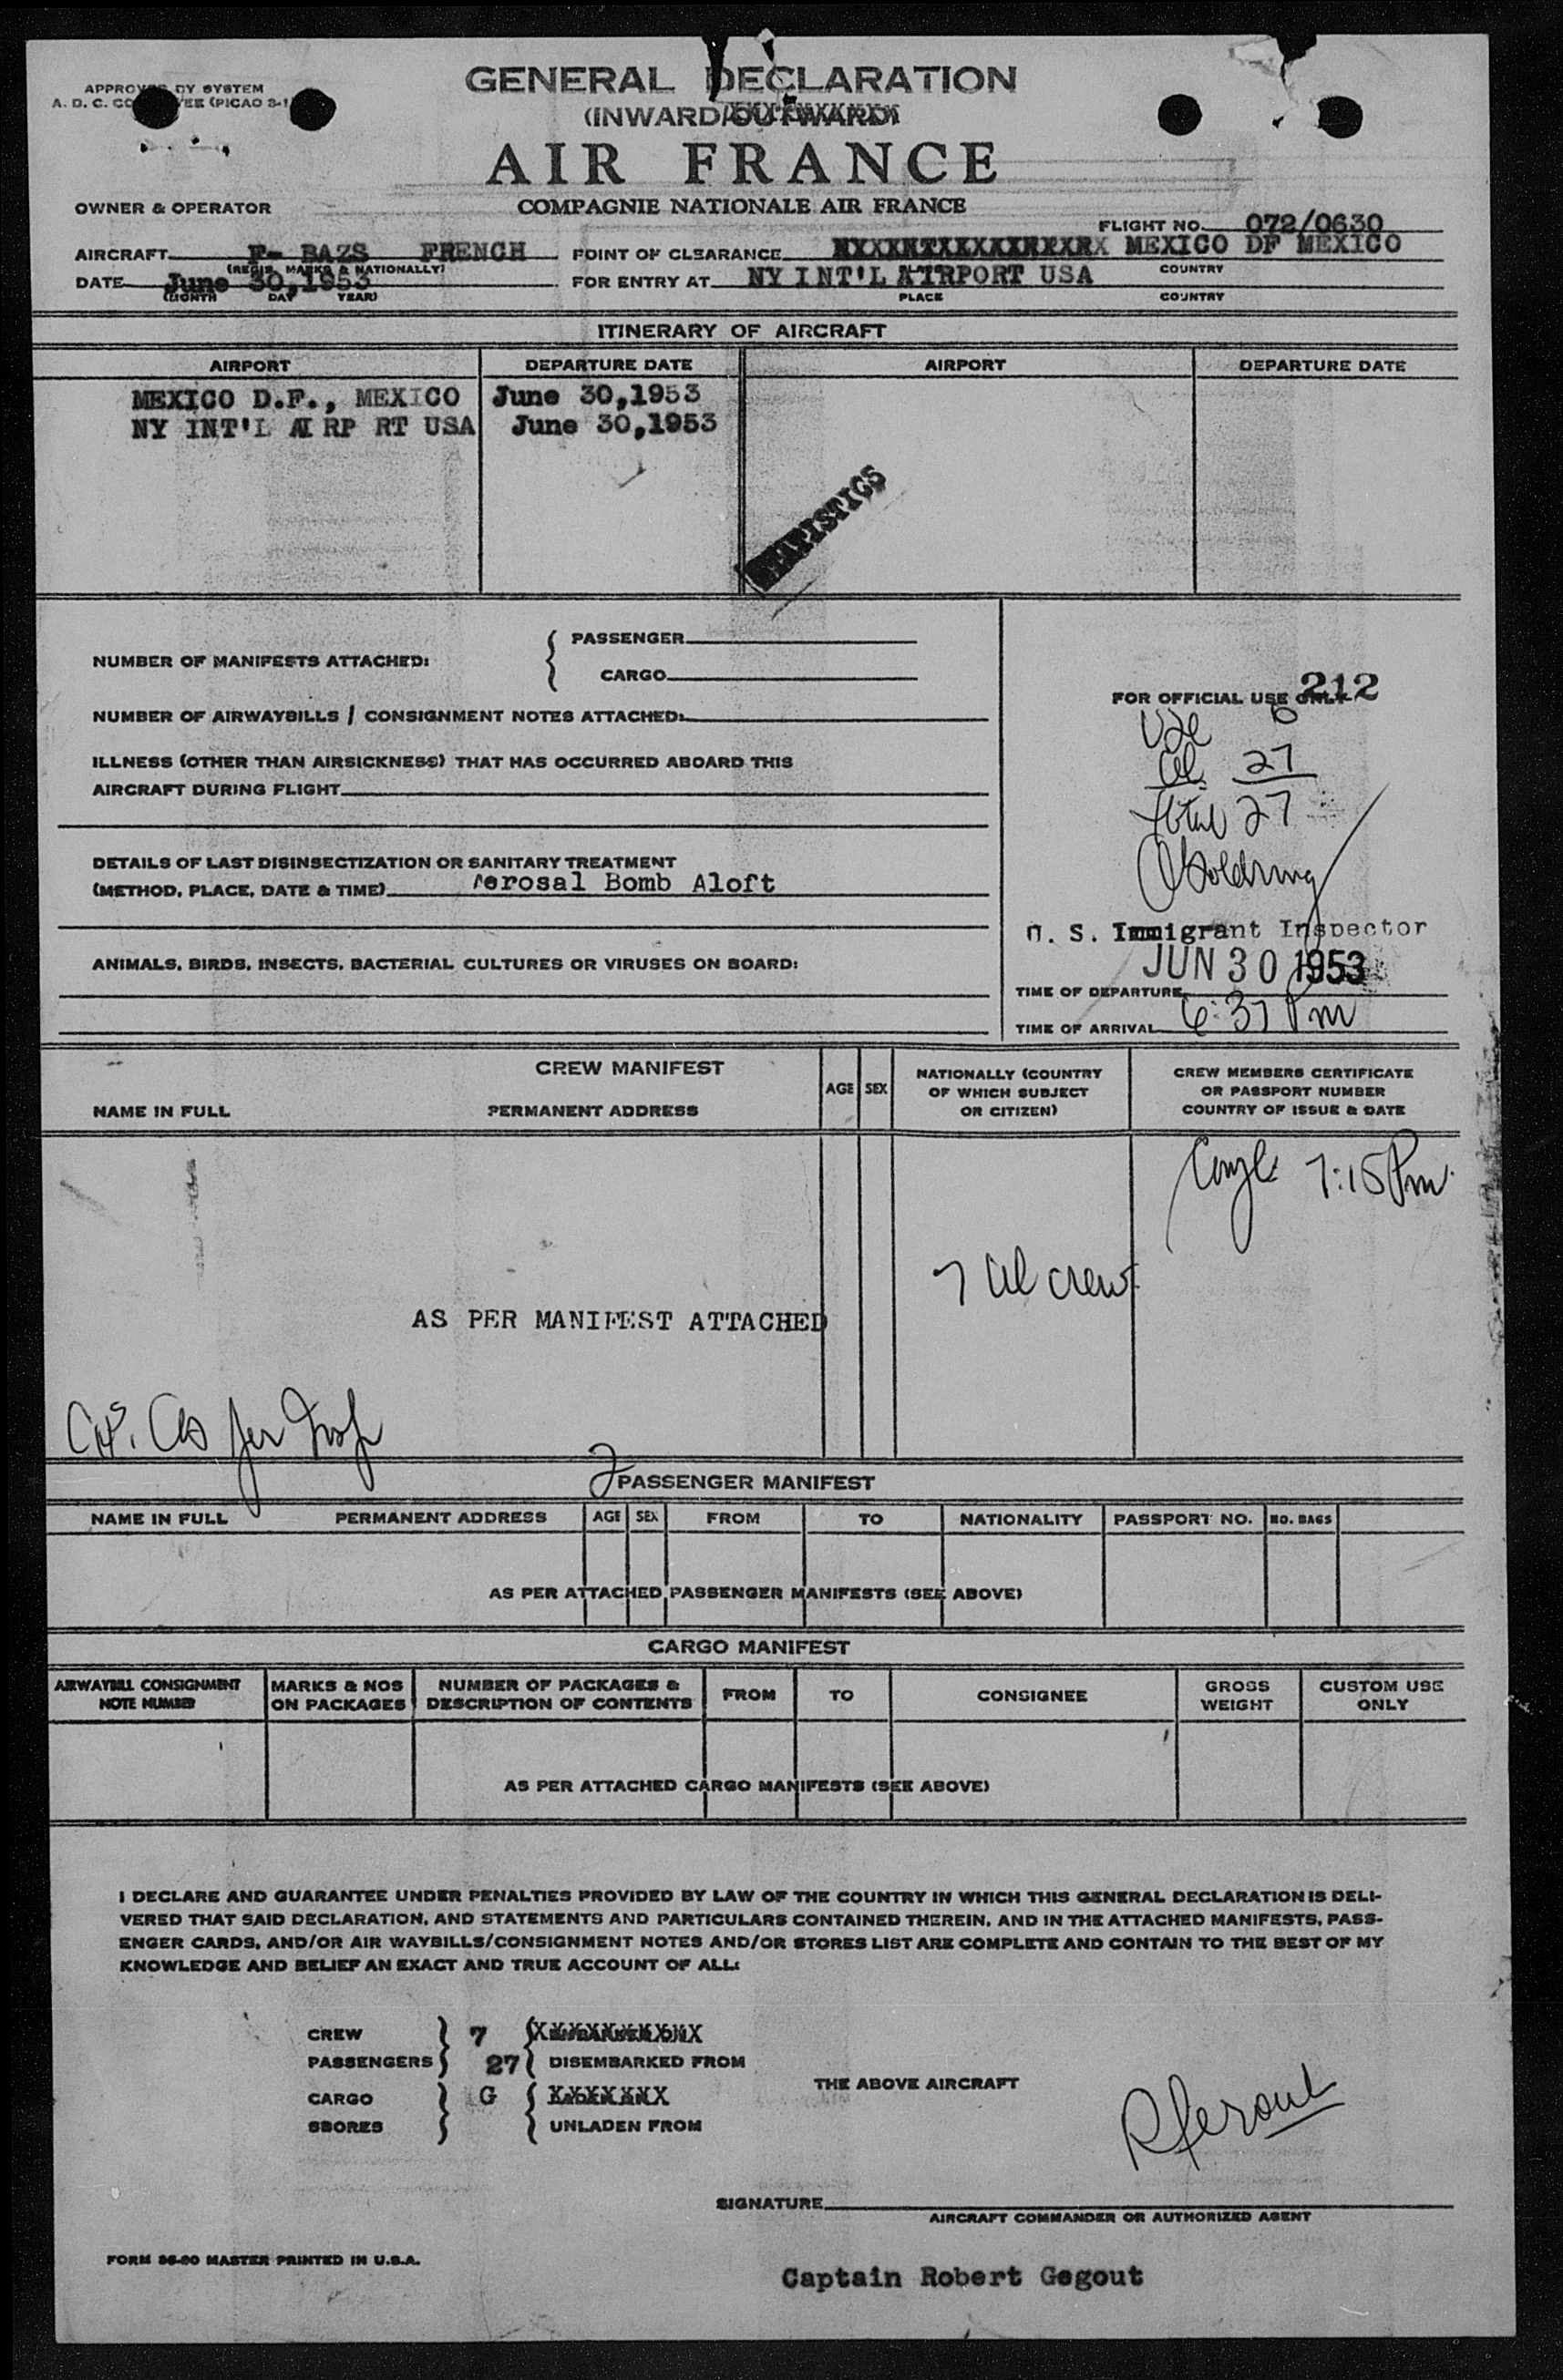 APPROVED BY SYSTEM
A. D. C. (PICAO 2-1
GENERAL DECLARATION
(INWARD/OUTWARD)
AIR FRANCE
OWNER & OPERATOR
COMPAGNIE NATIONALE AIR FRANCE
FLIGHT NO. 072/0630
AIRCRAFT F- BAZS FRENCH POINT OF CLEARANCE MEXICO DF MEXICO
(REGIS. MARKS & NATIONALLY) COUNTRY
DATE June 30,1953 FOR ENTRY AT NY INT'L AIRPORT USA
(MONTH DAY YEAR) PLACE COUNTRY
ITINERARY OF AIRCRAFT
AIRPORT DEPARTURE DATE AIRPORT DEPARTURE DATE
MEXICO D.F., MEXICO June 30,1953
NY INT'L AI RP RT USA June 30,1953
STATISTICS
NUMBER OF MANIFESTS ATTACHED: { PASSENGER
CARGO
212
FOR OFFICIAL USE ONLY
NUMBER OF AIRWAYBILLS / CONSIGNMENT NOTES ATTACHED:
ILLNESS (OTHER THAN AIRSICKNESS) THAT HAS OCCURRED ABOARD THIS
AIRCRAFT DURING FLIGHT
27
Total 27
DETAILS OF LAST DISINSECTIZATION OR SANITARY TREATMENT
(METHOD, PLACE, DATE & TIME) Aerosal Bomb Aloft
U. S. Immigrant Inspector
JUN 30 1953
ANIMALS, BIRDS, INSECTS, BACTERIAL CULTURES OR VIRUSES ON BOARD:
TIME OF DEPARTURE
TIME OF ARRIVAL 6:37 Pm
CREW MANIFEST
NAME IN FULL PERMANENT ADDRESS AGE SEX NATIONALLY (COUNTRY OF WHICH SUBJECT OR CITIZEN) CREW MEMBERS CERTIFICATE OR PASSPORT NUMBER COUNTRY OF ISSUE & DATE
7:15 Pm
7 al crew
AS PER MANIFEST ATTACHED
PASSENGER MANIFEST
NAME IN FULL PERMANENT ADDRESS AGE SEX FROM TO NATIONALITY PASSPORT NO. NO. BAGS
AS PER ATTACHED PASSENGER MANIFESTS (SEE ABOVE)
CARGO MANIFEST
AIRWAYBILL CONSIGNMENT NOTE NUMBER MARKS & NOS ON PACKAGES NUMBER OF PACKAGES & DESCRIPTION OF CONTENTS FROM TO CONSIGNEE GROSS WEIGHT CUSTOM USE ONLY
AS PER ATTACHED CARGO MANIFESTS (SEE ABOVE)
I DECLARE AND GUARANTEE UNDER PENALTIES PROVIDED BY LAW OF THE COUNTRY IN WHICH THIS GENERAL DECLARATION IS DELI-
VERED THAT SAID DECLARATION, AND STATEMENTS AND PARTICULARS CONTAINED THEREIN, AND IN THE ATTACHED MANIFESTS, PASS-
ENGER CARDS, AND/OR AIR WAYBILLS/CONSIGNMENT NOTES AND/OR STORES LIST ARE COMPLETE AND CONTAIN TO THE BEST OF MY
KNOWLEDGE AND BELIEF AN EXACT AND TRUE ACCOUNT OF ALL:
CREW } 7 {
PASSENGERS } 27 { DISEMBARKED FROM
THE ABOVE AIRCRAFT
CARGO } G {
SBORES } { UNLADEN FROM
SIGNATURE
AIRCRAFT COMMANDER OR AUTHORIZED AGENT
FORM 36-90 MASTER PRINTED IN U.S.A.
Captain Robert Gegout